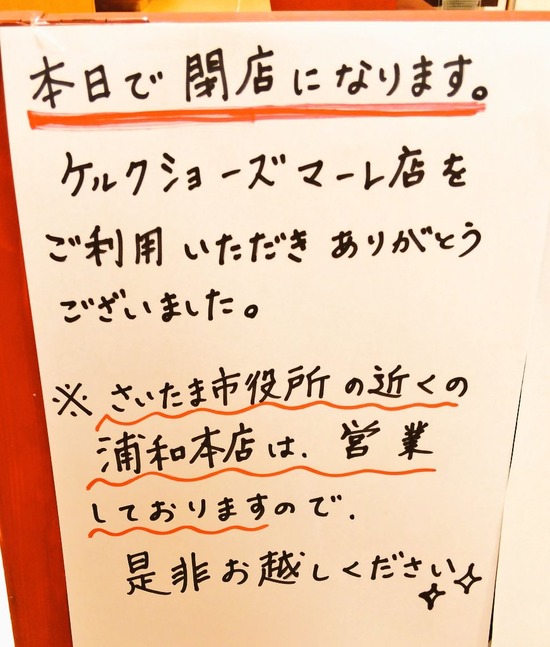 本日で閉店になります。
ケルクショーズマーレ店を
ご利用いただきありがとう
ございました。
※さいたま市役所の近くの
浦和本店は、営業
しておりますので、
是非お越しください